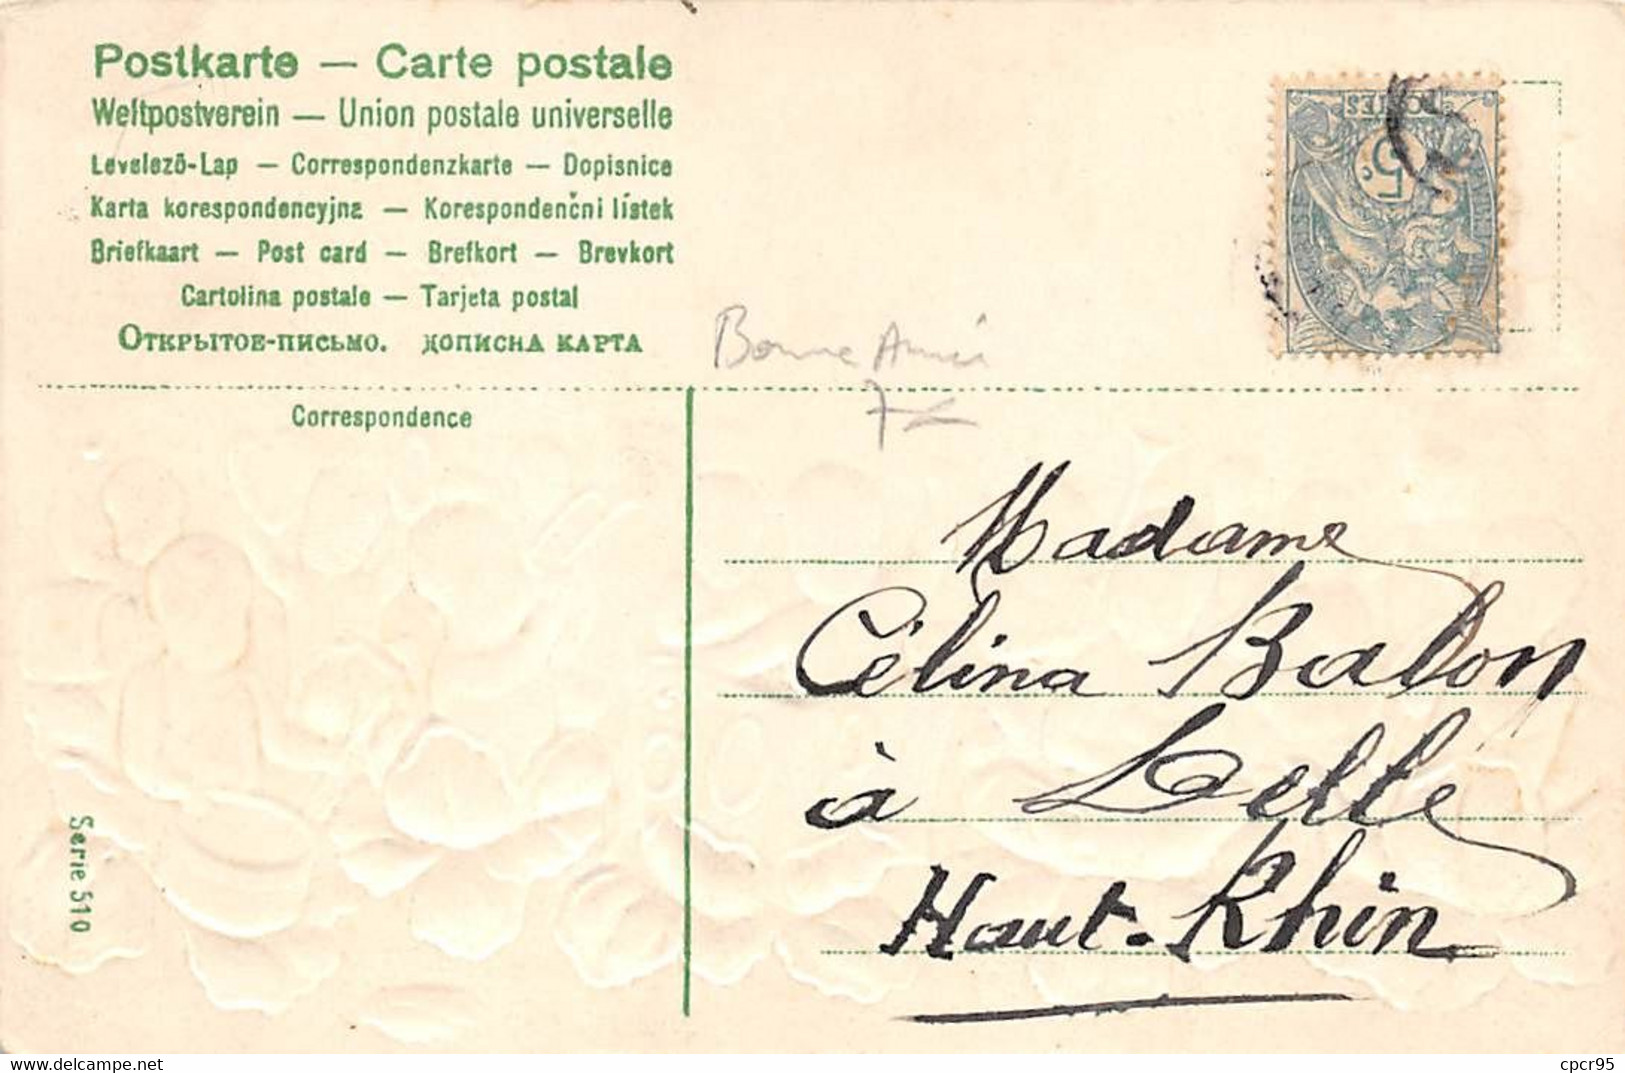 Postkarte — Carte postale
Weltpostverein — Union postale universelle
Levelező-Lap — Correspondenzkarte — Dopisnice
Karta korespondencyjna — Korespondenčni lístek
Briefkaart — Post card — Brefkort — Brevkort
Cartolina postale — Tarjeta postal
Открытое-письмо. дописна карта
POSTES
5 c.
Bonne Année
7
Correspondence
Madame
Célina Balon
à Delle
Haut-Rhin
Serie 510
cpcr95